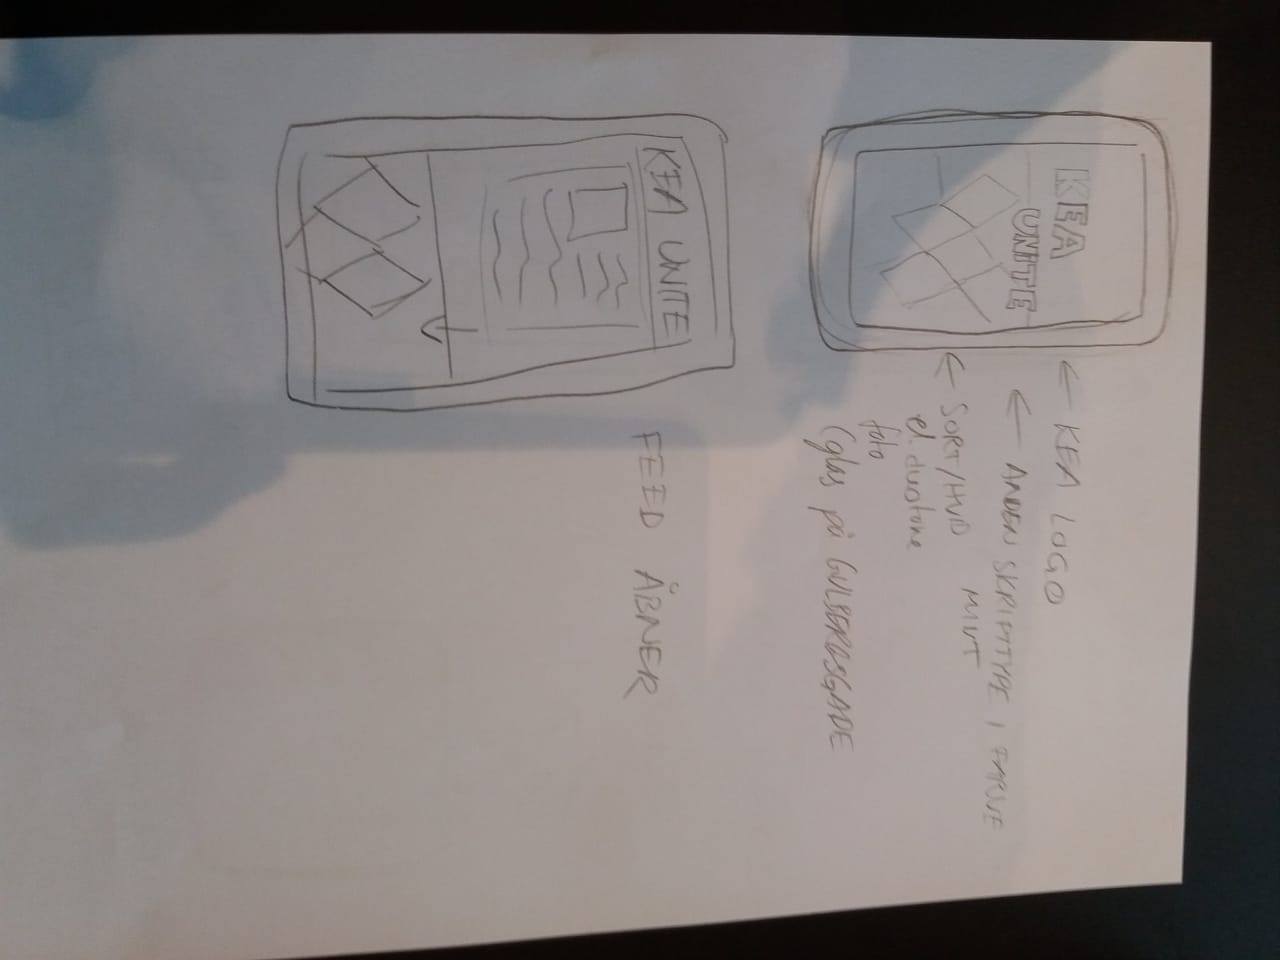 KEA
UNITE
← KEA LOGO
← ANDEN SKRIFTTYPE I FARVE
MINT
← SORT/HVID
el. duotone
foto
(glas på GULDBERGSGADE
KEA UNITE
FEED ÅBNER